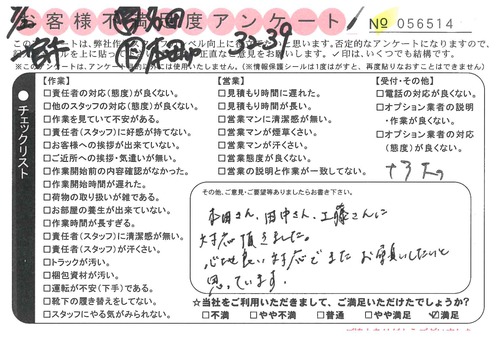 お客様不満足度アンケート
№ 056514
32-39
チェックリスト
【作業】
□責任者の対応(態度)が良くない。
□他のスタッフの対応(態度)が良くない。
□作業を見ていて不安がある。
□責任者(スタッフ)に好感が持てない。
□お客様への挨拶が出来ていない。
□ご近所への挨拶・気遣いが無い。
□作業開始前の内容確認がなかった。
□作業開始時間が遅れた。
□荷物の取り扱いが雑である。
□お部屋の養生が出来ていない。
□作業時間が長すぎる。
□責任者(スタッフ)に清潔感が無い。
□責任者(スタッフ)が汗くさい。
□トラックが汚い。
□梱包資材が汚い。
□運転が不安(下手)である。
□靴下の履き替えをしてない。
□スタッフにやる気がみられない。
【営業】
□見積もり時間に遅れた。
□見積もり時間が長い。
□営業マンに清潔感が無い。
□営業マンが煙草くさい。
□営業マンが汗くさい。
□営業態度が良くない。
□営業の説明と作業が一致してない。
【受付・その他】
□電話の対応が良くない。
□オプション業者の説明
・作業が良くない。
□オプション業者の対応
(態度)が良くない。
その他、ご意見・ご要望等ありましたらお書き下さい。
本田さん、田中さん、工藤さんに
対応頂きました。
心地良い対応でまたお願いしたいと
思っています。
☆当社をご利用いただきまして、ご満足いただけたでしょうか?
□不満 □やや不満 □普通 □やや満足 ☑満足